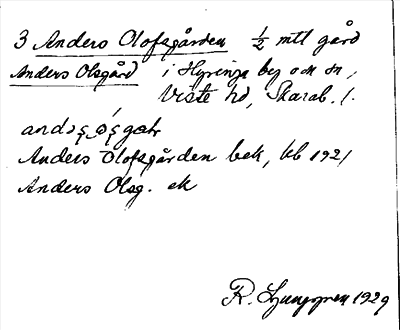 3 Anders Olofsgården 1/2 mtl gård
Anders Olsgård i Hyringa by och sn,
Viste hd, Skarab. l.
Anders Olofsgården bek, kb 1921
Anders Olsg. ek
R. Ljunggren 1929